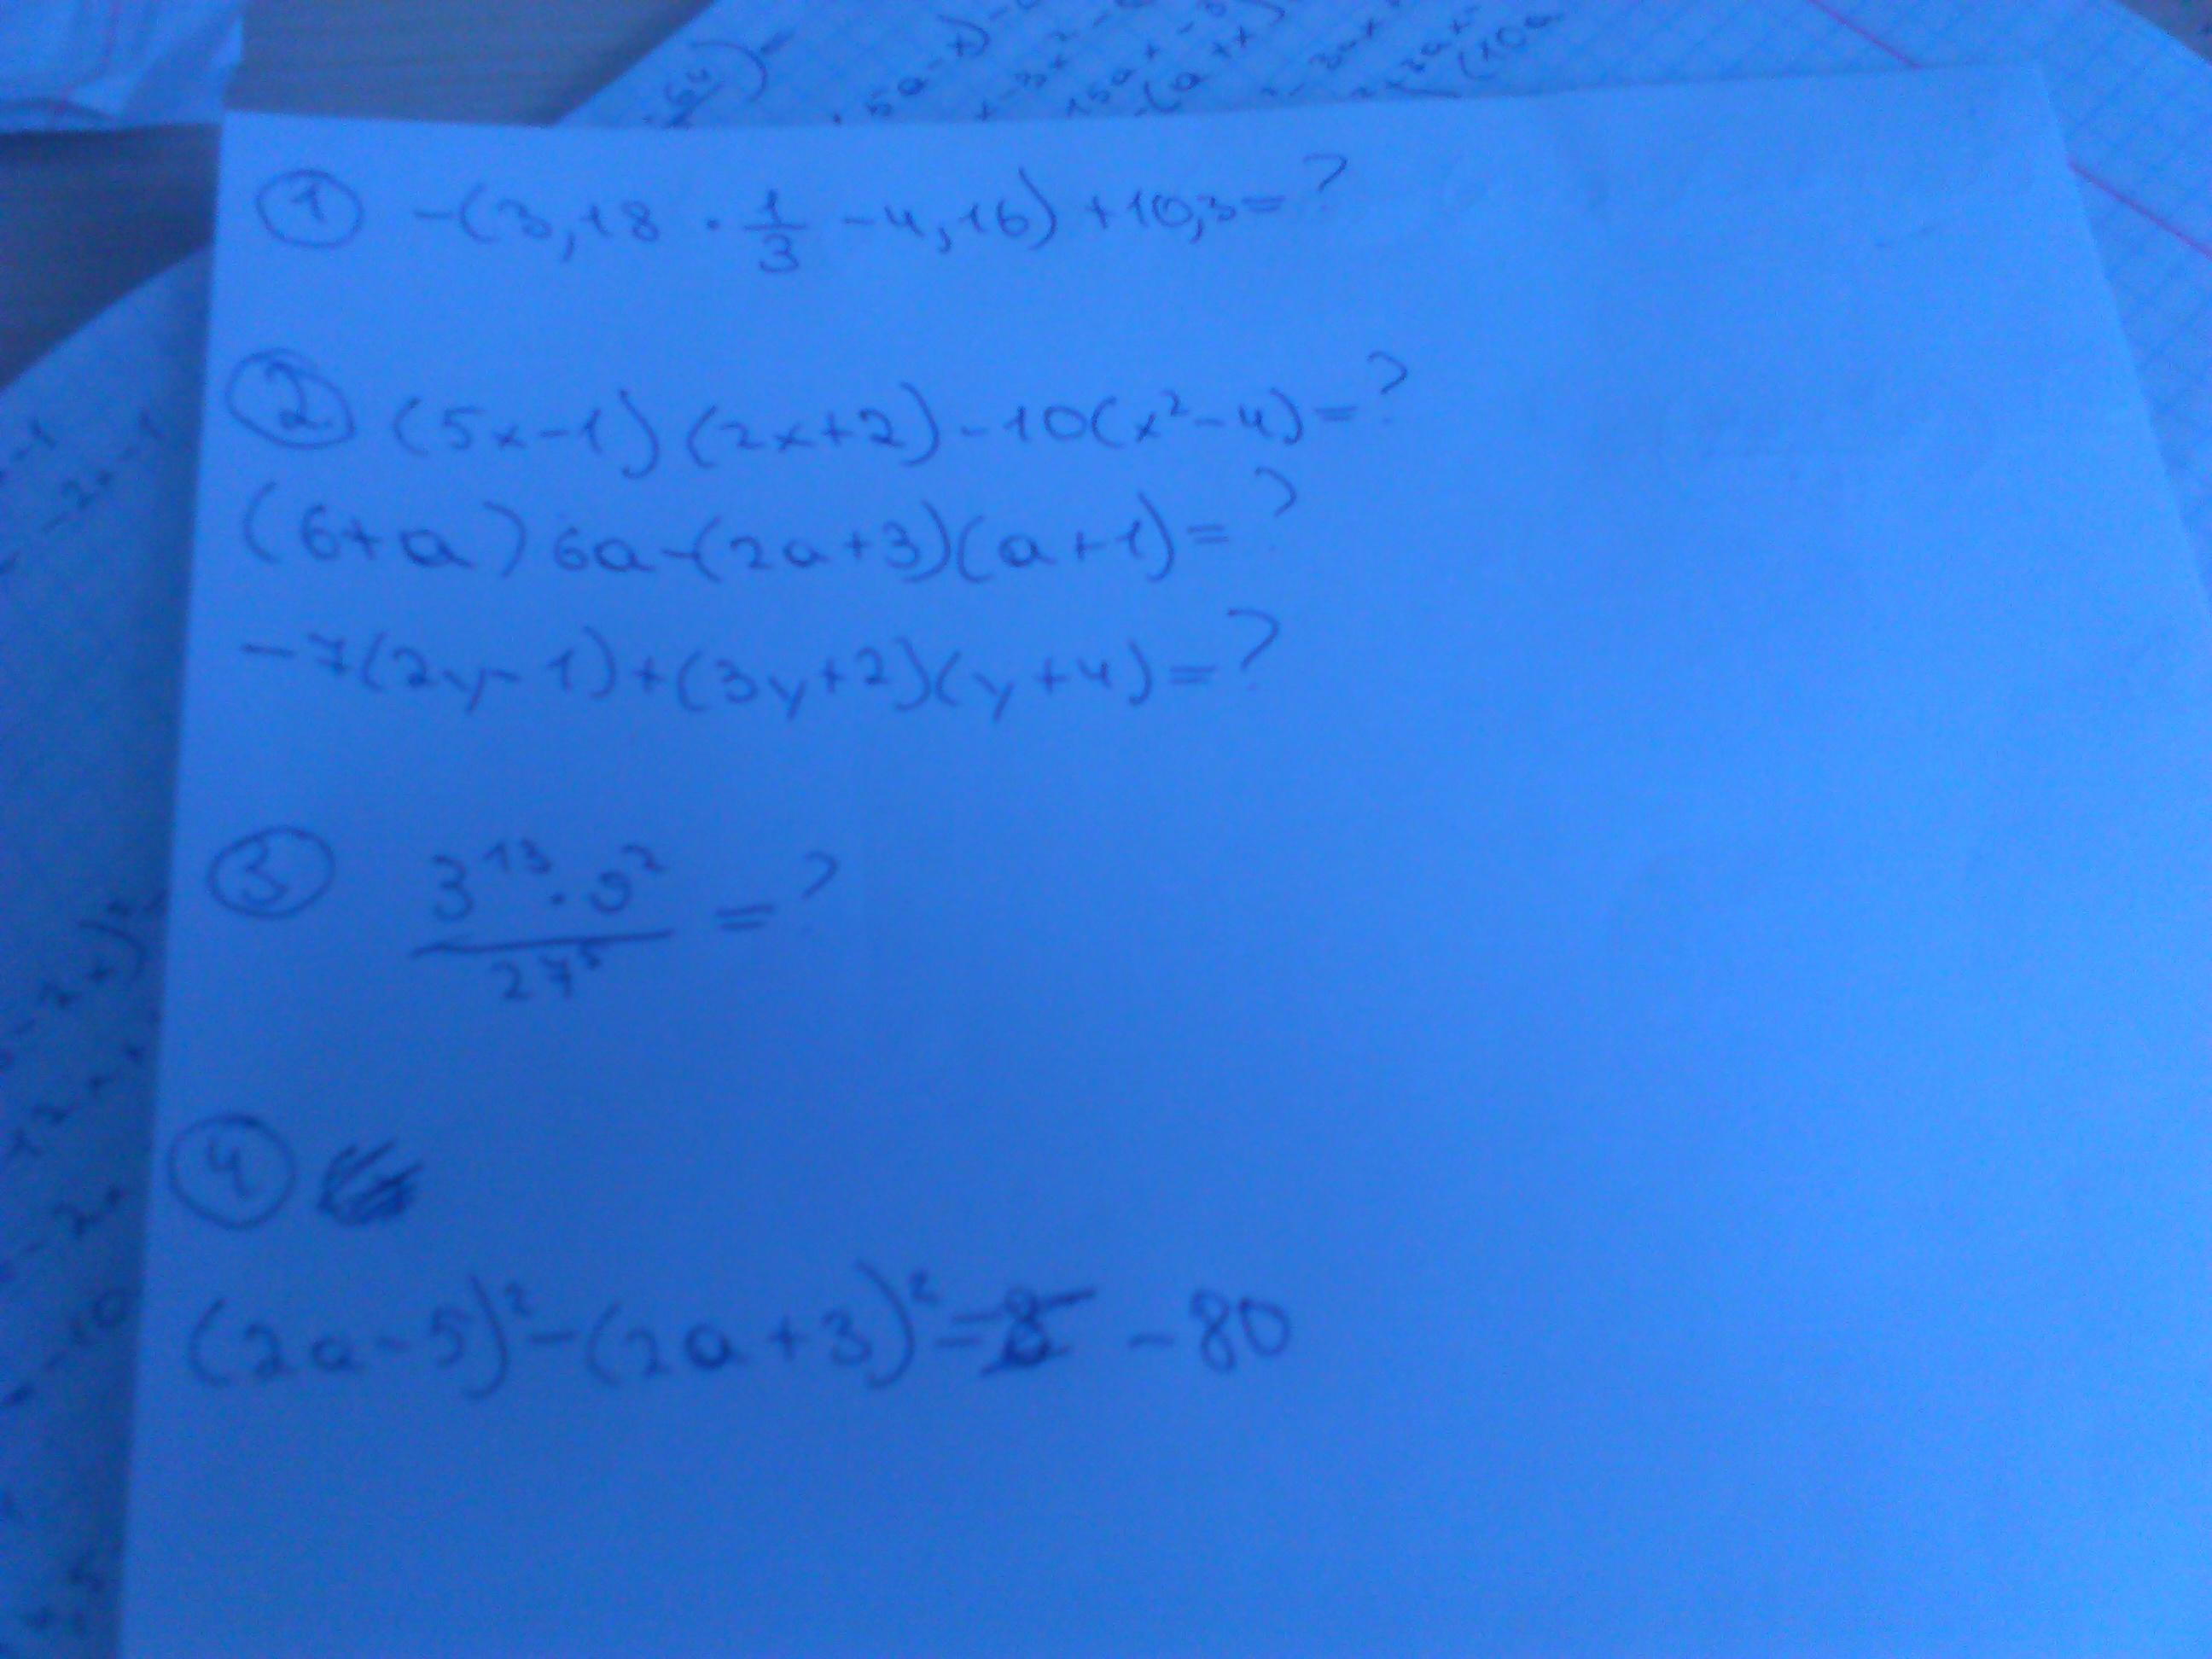 ① -(3,18 · 1/3 - 4,16) + 10,3 = ?
② (5x-1)(2x+2) - 10(x² - 4) = ?
(6+a) 6a - (2a+3)(a+1) = ?
-7(2y-1) + (3y+2)(y+4) = ?
③ 3¹³ · 9² / 27⁵ = ?
④
(2a-5)² - (2a+3)² = - 80